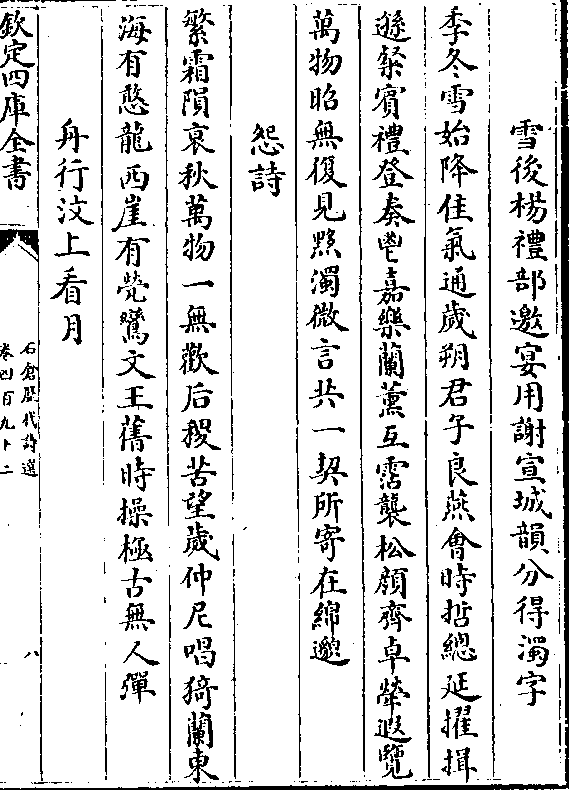 雪後楊禮部邀宴用謝宣城韻分得濁字
季冬雪始降佳氣通歲朔君子良燕會時哲總延擢揖
遜粲賓禮登奏鬯嘉樂蘭薰互霑襲松顔齊卓犖遐覽
萬物昭無復見點濁微言共一契所寄在綿邈
怨詩
繁霜隕哀秋萬物一無歡后稷苦望歲仲尼唱猗蘭東
海有憨龍西崖有煢鸞文王舊時操極古無人彈
舟行汶上看月
欽定四庫全書
石倉歷代詩選
卷四百九十二
八